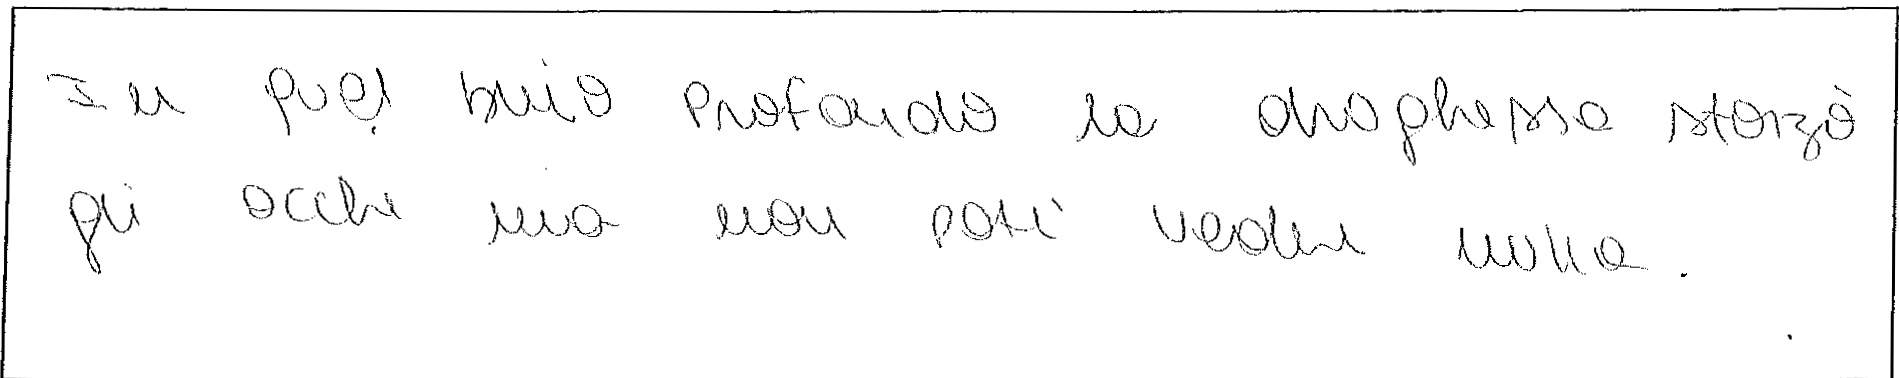 In quel buio profondo la draghessa storzò
gli occhi ma non poté vedere nulla.